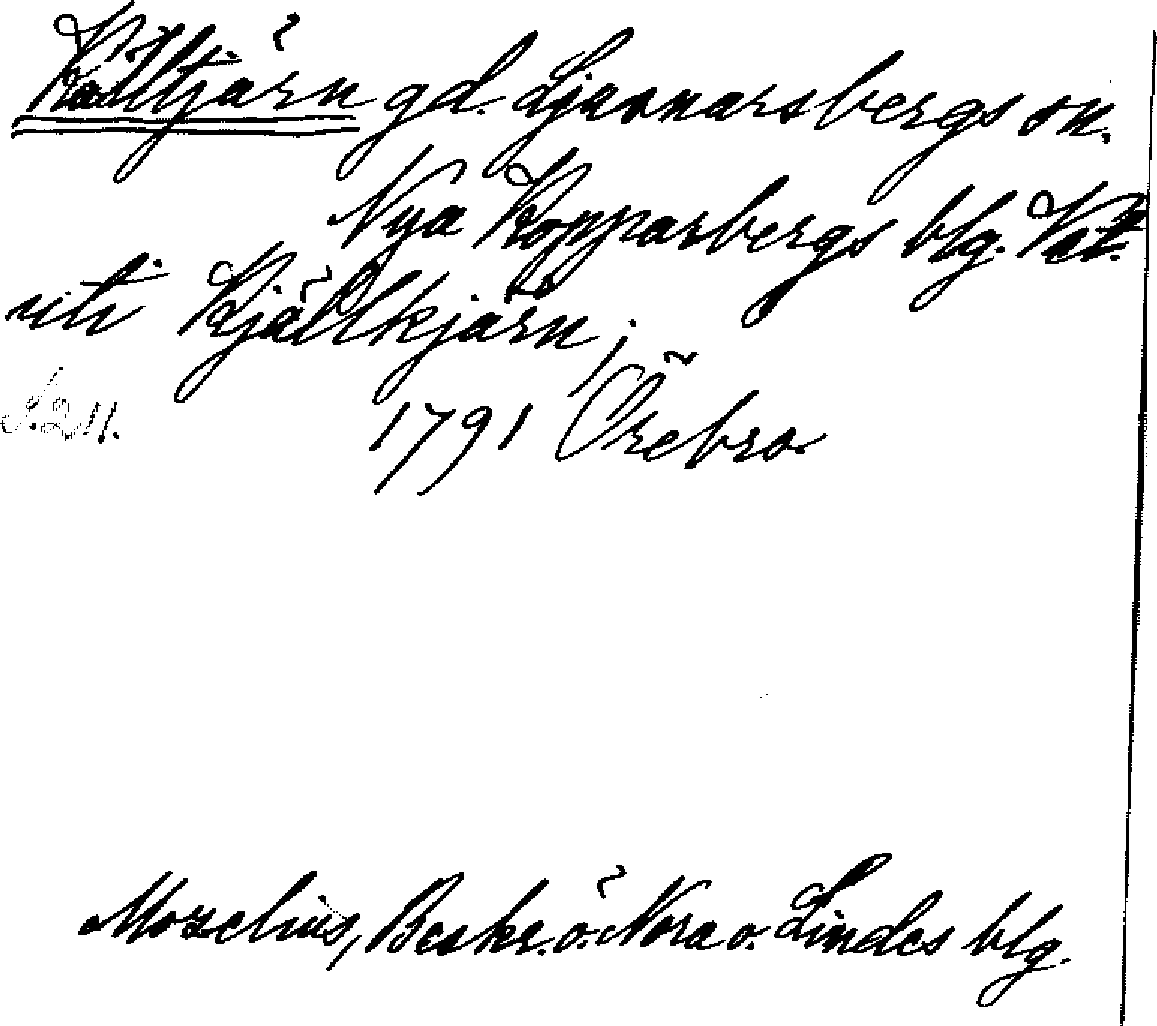 Källtjärn gd. Ljusnarsbergs sn.
Nya Kopparbergs blg. Väst.
uti Kjällkjärn;
S. 211.
1791 Örebro
Mozelius, Beskr. ö. Nora o. Lindes blg.